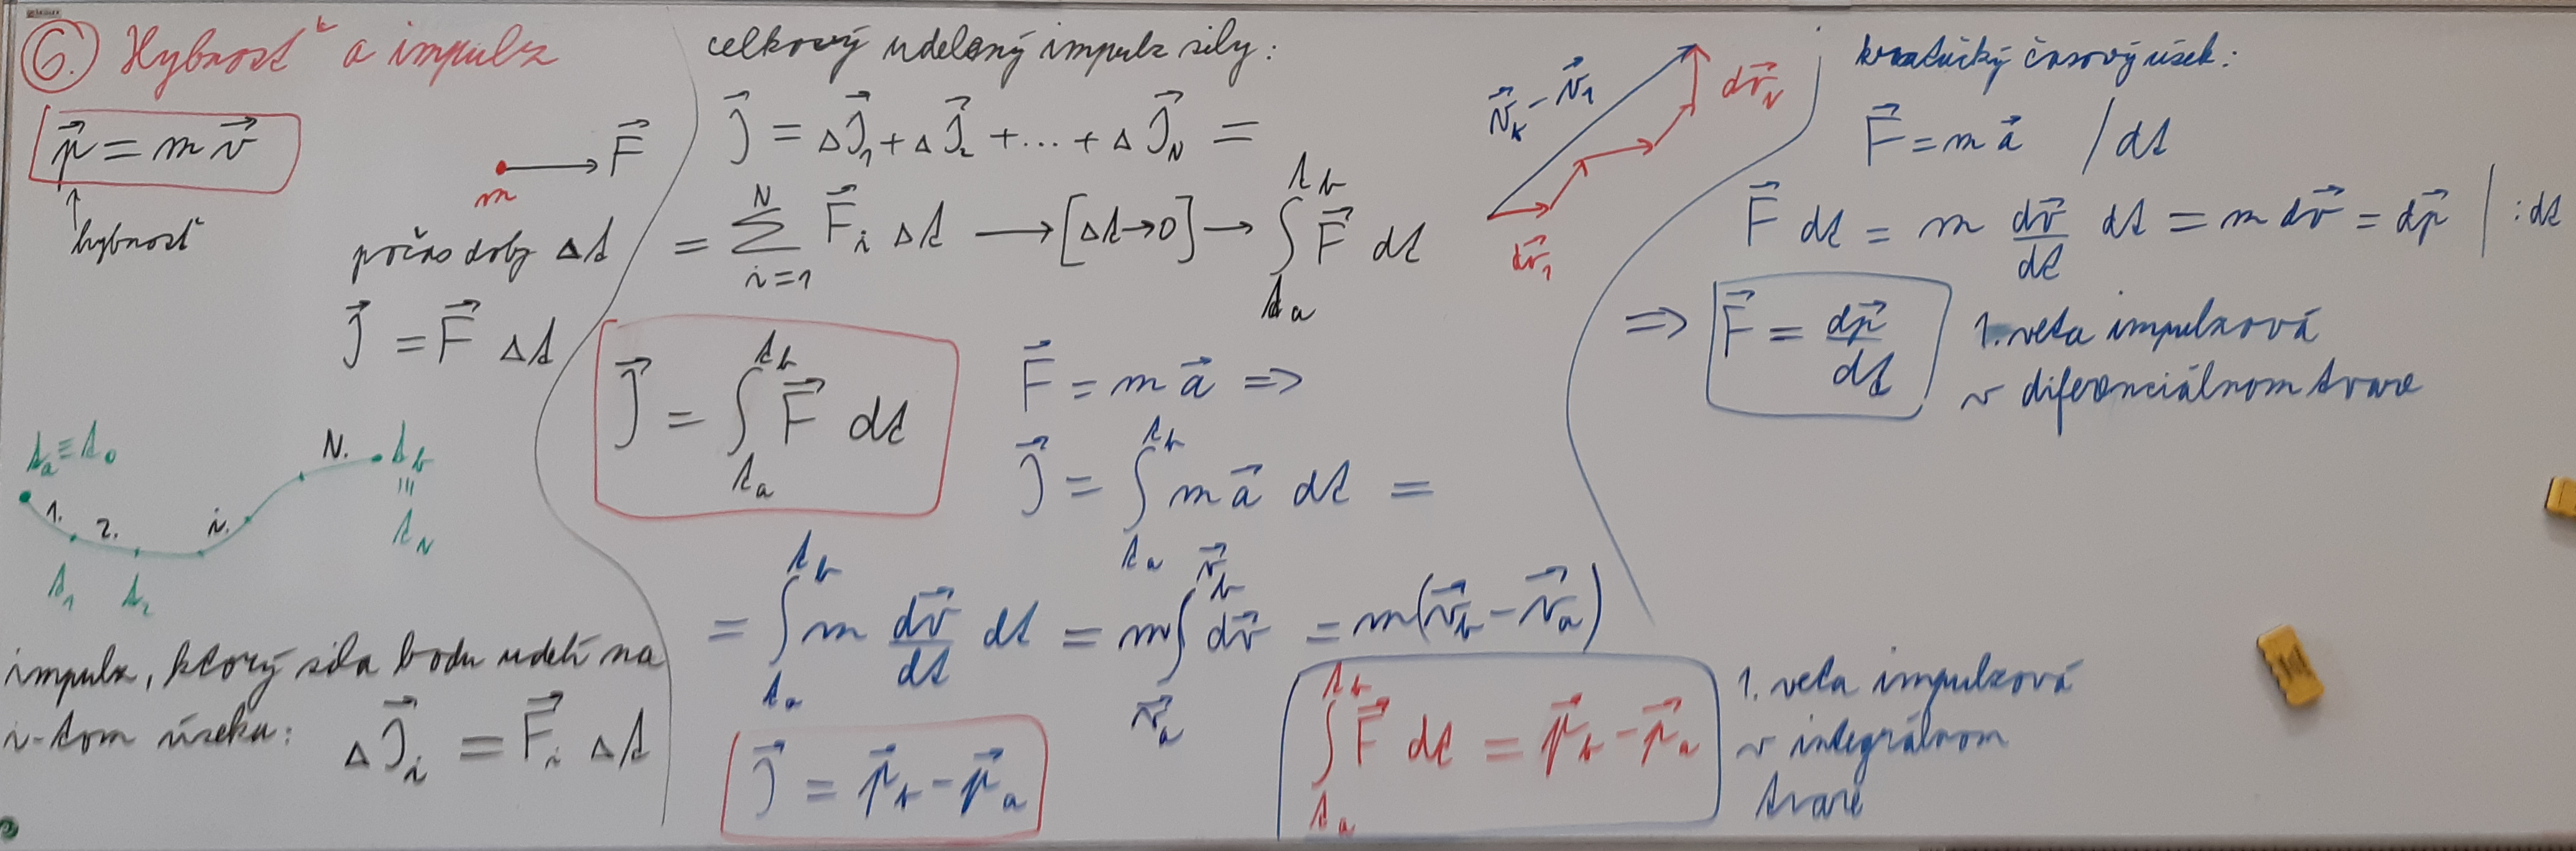 6. Hybnosť a impulz
p⃗ = m v⃗
↑
hybnosť
F⃗
m
počas doby Δt
J⃗ = F⃗ Δt
t_a ≡ t_0
1.
2.
i.
N.
t_b
≡
t_N
t_1
t_2
impulz, ktorý sila bodu udelí na
i-tom úseku: ΔJ⃗_i = F⃗_i Δt
celkový udelený impulz sily:
J⃗ = ΔJ⃗_1 + ΔJ⃗_2 + ... + ΔJ⃗_N =
= ∑_{i=1}^{N} F⃗_i Δt → [Δt→0] → ∫_{t_a}^{t_b} F⃗ dt
J⃗ = ∫_{t_a}^{t_b} F⃗ dt
F⃗ = m a⃗ =>
J⃗ = ∫_{t_a}^{t_b} m a⃗ dt =
= ∫_{t_a}^{t_b} m dv⃗/dt dt = m ∫_{v⃗_a}^{v⃗_b} dv⃗ = m(v⃗_b - v⃗_a)
J⃗ = p⃗_b - p⃗_a
∫_{t_a}^{t_b} F⃗ dt = p⃗_b - p⃗_a
1. veta impulzová
v integrálnom
tvare
v⃗_k - v⃗_1
dv⃗_N
dv⃗_1
kratučký časový úsek:
F⃗ = m a⃗ / dt
F⃗ dt = m dv⃗/dt dt = m dv⃗ = dp⃗ | :dt
=> F⃗ = dp⃗/dt
1. veta impulzová
v diferenciálnom tvare